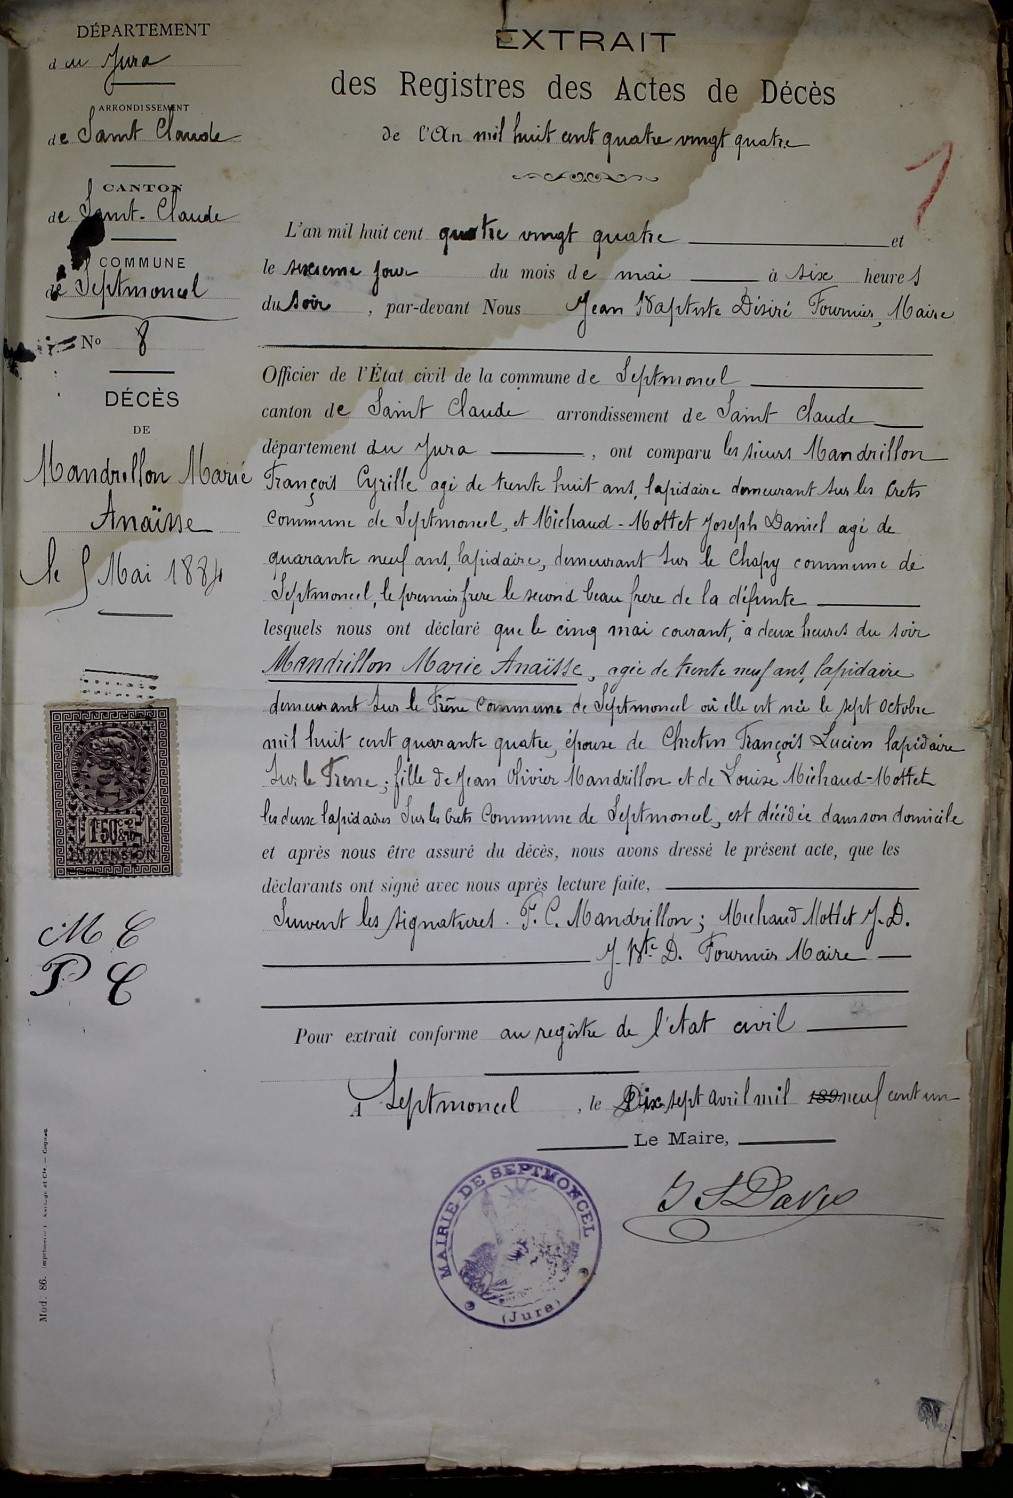 DÉPARTEMENT
du Jura
ARRONDISSEMENT
de Saint Claude
CANTON
de Saint-Claude
COMMUNE
de Septmoncel
No 8
DÉCÈS
DE
Mandrillon Marie
Anaïsse
le 5 Mai 1884
1F50
DIMENSION
M C
P C
EXTRAIT
des Registres des Actes de Décès
de l'An mil huit cent quatre vingt quatre
1
L'an mil huit cent quatre vingt quatre et
le sixieme jour du mois de mai à six heures
du soir, par-devant Nous Jean Baptiste Désiré Fournier, Maire
Officier de l'État civil de la commune de Septmoncel
canton de Saint Claude arrondissement de Saint Claude
département du Jura, ont comparu les sieurs Mandrillon
François Cyrille agé de trente huit ans, lapidaire demeurant sur les Crets
commune de Septmoncel, et Michaud-Mottet Joseph Daniel agé de
quarante neuf ans, lapidaire, demeurant sur le Chapy commune de
Septmoncel, le premier frere le second beau frere de la défunte
lesquels nous ont déclaré que le cinq mai courant, à deux heures du soir
Mandrillon Marie Anaïsse, agée de trente neuf ans, lapidaire
demeurant sur le Frêne commune de Septmoncel où elle est née le sept octobre
mil huit cent quarante quatre, épouse de Chretin François Lucien lapidaire
sur le Frene; fille de Jean Olivier Mandrillon et de Louise Michaud-Mottet
les deux lapidaires sur les Crets Commune de Septmoncel, est décédée dans son domicile
et après nous être assuré du décès, nous avons dressé le présent acte, que les
déclarants ont signé avec nous après lecture faite,
Suivent les signatures. F. C. Mandrillon; Michaud Mottet J. D.
J. Bte D. Fournier Maire
Pour extrait conforme au registre de l'état civil
A Septmoncel, le Dix sept avril mil 189 neuf cent un
Le Maire,
MAIRIE DE SEPTMONCEL
(Jura)
Mod. 86.